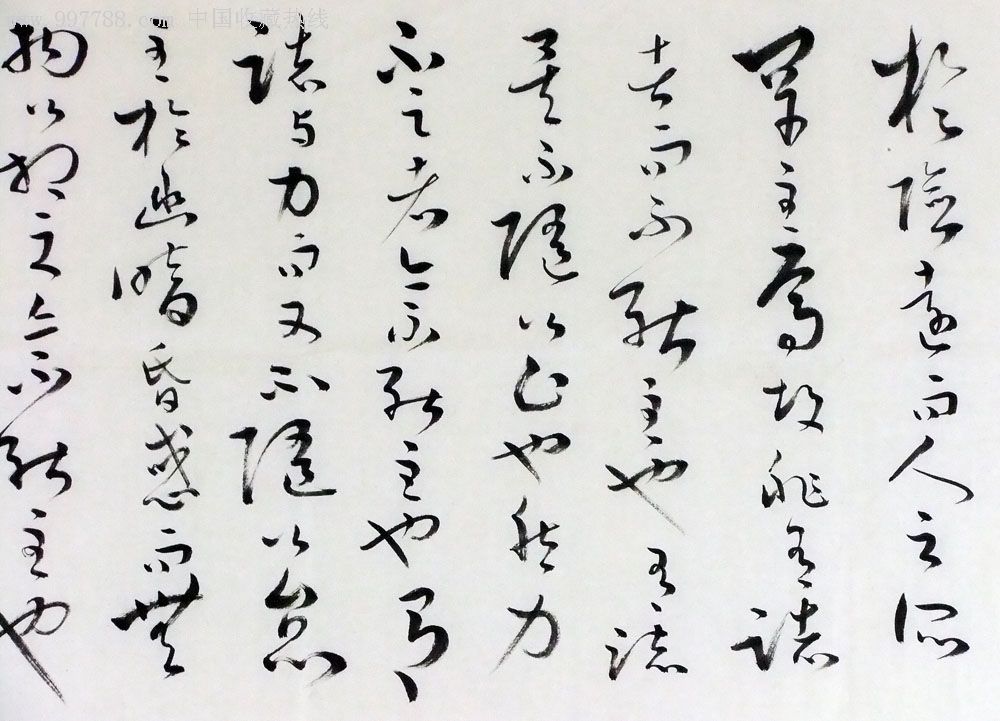 www.997788.com 中国收藏热线
於險遠而人之所
罕至焉故非有誌
者而不能至也有誌
矣不隨以止也然力
不足者亦不能至也有
誌与力而又不隨以怠
至於幽暗昏惑而無
物以相之亦不能至也